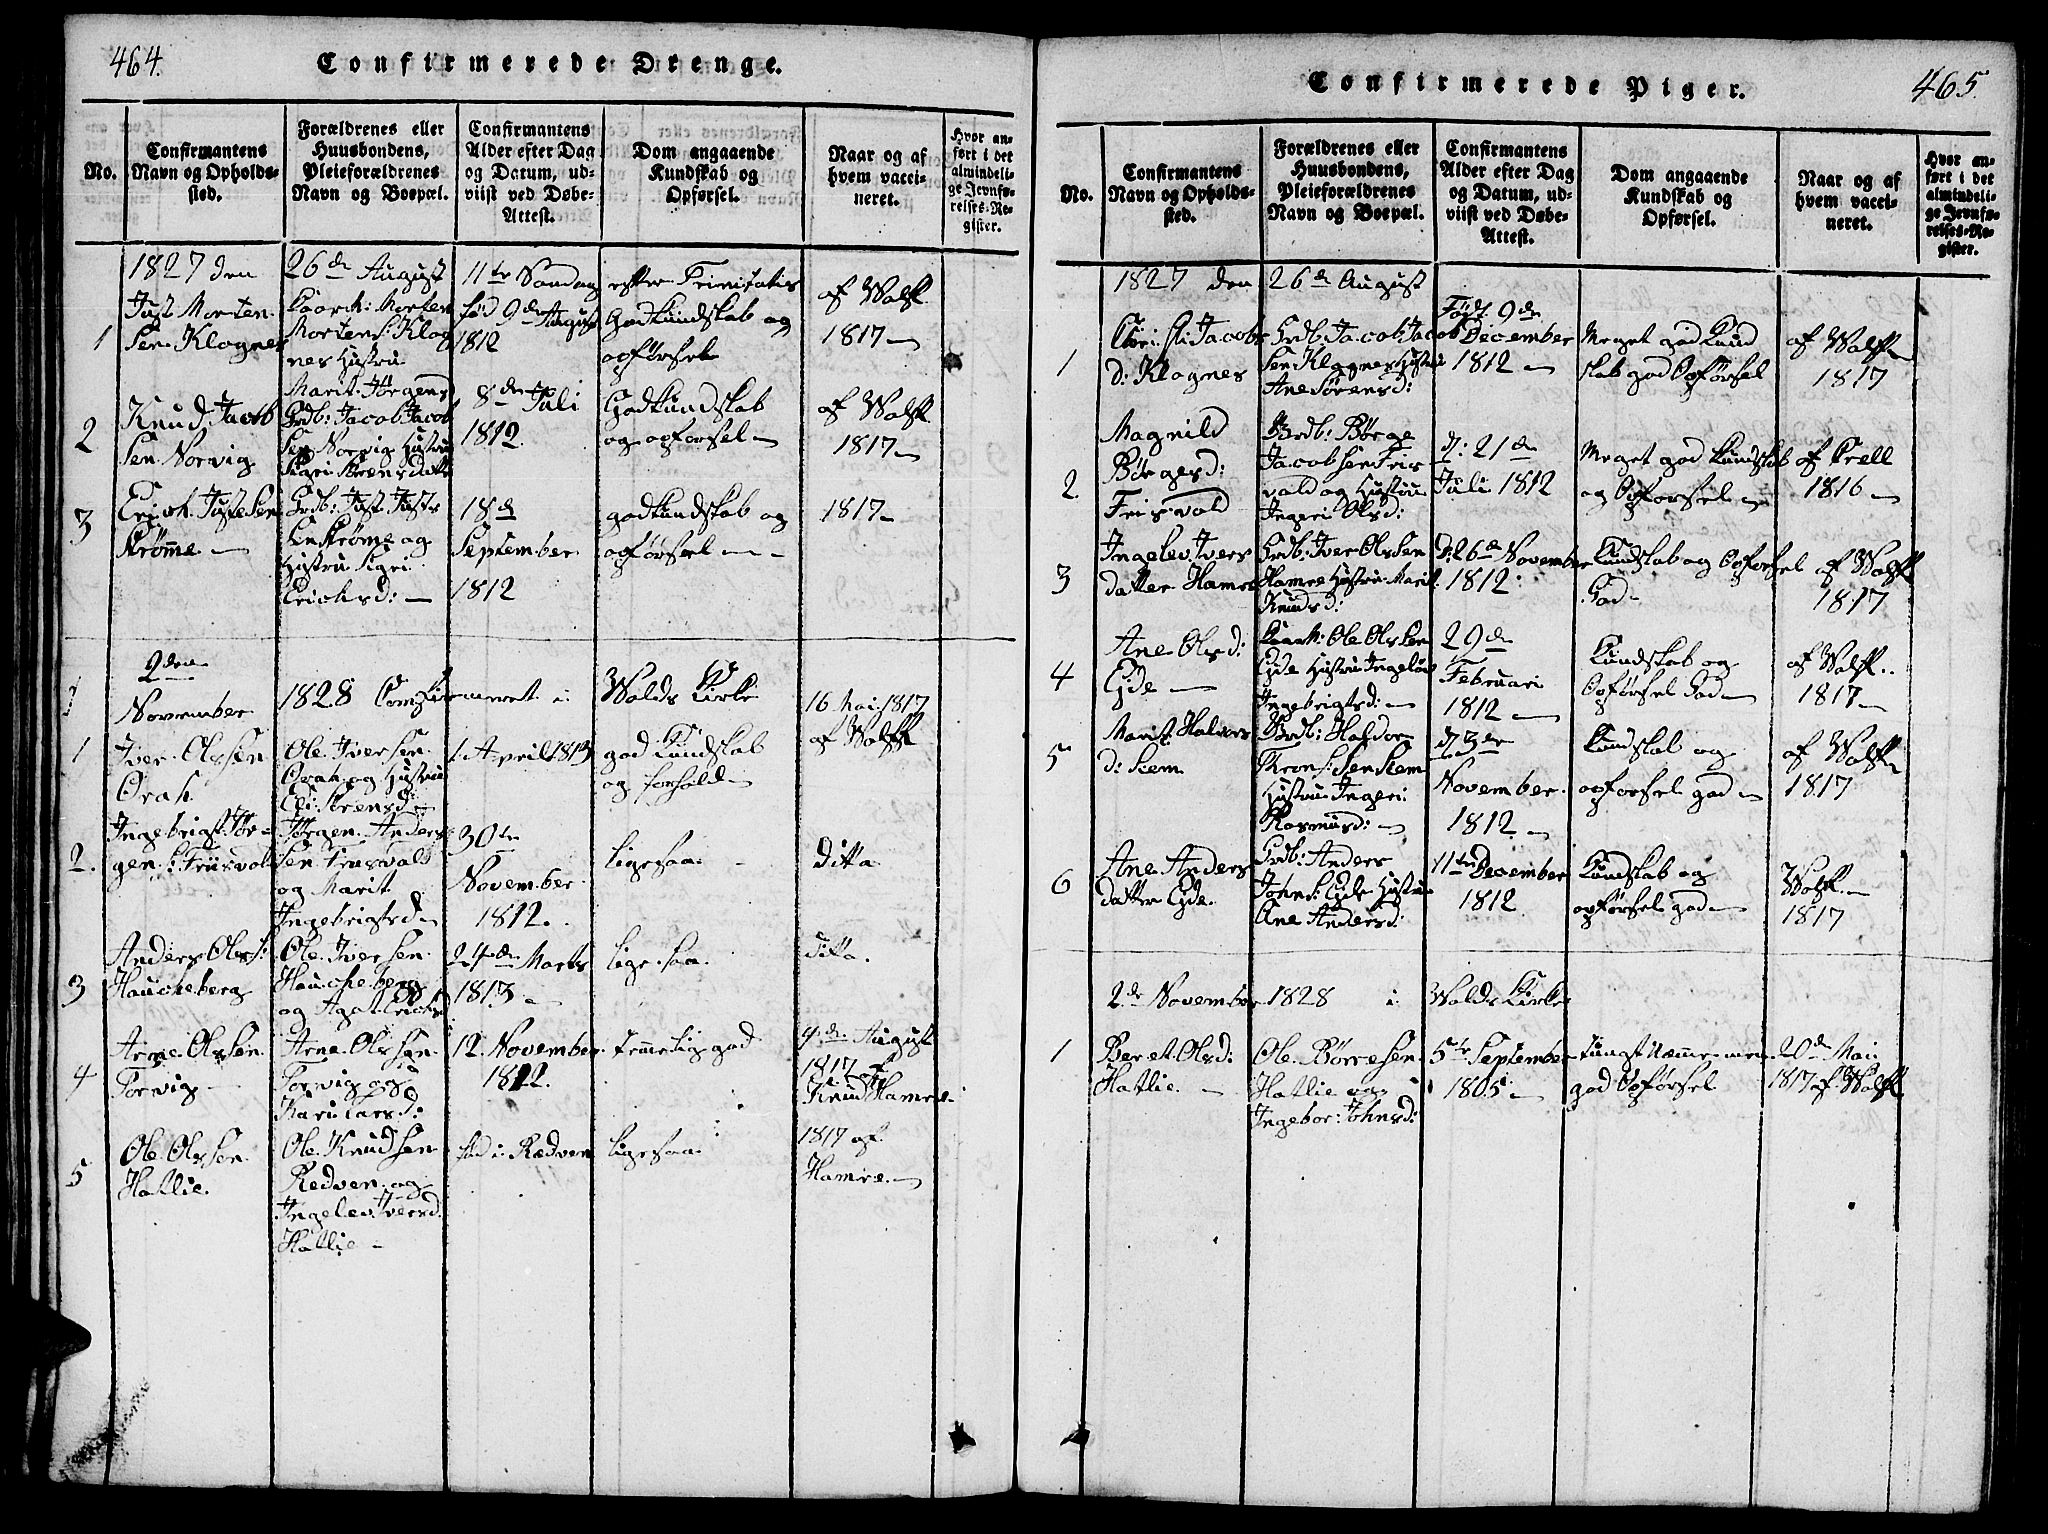 464.
Confirmerede Drenge.
No.
Confirmantens
Navn og Opholds-
sted.
Forældrenes eller
Huusbondens,
Pleieforældrenes
Navn og Boepæl.
Confirmantens
Alder efter Dag
og Datum, ud-
viist ved Døbe-
Attest.
Dom angaaende
Kundskab og
Opførsel.
Naar og af
hvem vacci-
neret.
Hvor an-
ført i det
almindeli-
ge Jevnfø-
relses-Re-
gister.
1827 den 26de August 11te Søndag efter Trinitatis
1
Just Morten
Sen Klognes
Morten
Mortens: Klog
nes Hustru
Marit Jørgensd
fød 9de August
1812
God kundskab og
opførsel
af Wolff
1817
2
Knud Jacob
Sen Norvig
Grdb: Jacob Jacob
Sen Norvig Hustru
Sigri
8de Juli
1812
God kundskab
og opførsel
af Wolff
1817
3
Erich Justesen
Strømme
Grdb: Just Juste
Sen Strømme og
Hustru Sigri
Erichsd:
18de
September
1812
god kundskab og
opførsel
1817
2den
November 1828 Confirmeret i Wolds Kirke
1
Iver Olssen
Orah
Ole Iversen
Orah og Hustru
Eli
1. April 1813
god Kundskab
og forhold
16 Mai 1817
af Wolff
2.
Ingebrigt Jør-
gens: Friisvold
Jørgen Anders
Sen Friisvold
og Marit
Ingebrigtsd
30te
November
1812.
ligesaa
ditto
3
Anders Olss:
Haucheberg
Ole Iversen
Haucheberg
og Agat Erichsd
24de Marts
1813
ligesaa.
ditto.
4
Arne Olssen
Torvig
Arne Olssen
Torvig og
Kari Larsd:
12. November
1812.
temmelig god
4de August
1817 af
Knud Hamre
5
Ole Olssen
Hatlie.
Ole Knudsen
Redven og
Ingelev Iversd.
Hatlie
fød i Rødven
ligesaa
1817 af
Hamre
Confirmerede Piger.
465.
No.
Confirmantens
Navn og Opholds-
sted.
Forældrenes eller
Huusbondens,
Pleieforældrenes
Navn og Boepæl.
Confirmantens
Alder efter Dag
og Datum, ud-
viist ved Døbe-
Attest.
Dom angaaende
Kundskab og
Opførsel.
Naar og af
hvem vacci-
neret.
Hvor an-
ført i det
almindeli-
ge Jevnfø-
relses-Re-
gister.
1827 den 26de August
1
Jacobs
d: Klognes
Grdb: Jacob Jacob
Sen Klognes Hustru
Ane Sørensd:
Født 9de
December
1812
Meget god Kund
skab god Opførsel
af Wolff
1817
2
Magnild
Børgesd:
Friisvold
Grdb: Børge
Jacobsen Friis
vold og Hustru
Ingeri Olsd:
d: 21de
Juli 1812
Meget god kundskab
og Opførsel
af Krell
1816
3
Ingelev Ivers
datter Hamre
Grdb: Iver Olssen
Hamre Hustru Marit
Knudsd:
d: 26de November
1812
Kundskab og Opførsel
God
af Wolff
1817
4
Ane Olsd:
Eide
Ole Olssen
Eide Hustru Ingeløv
Ingebrigtsd:
29de
Februari
1812
Kundskab og
Opførsel God
af Wolff
1817
5
Marit Halvors
d: Siem
Grdb: Haldor
Trons: Sen Siem
Hustru Ingeri
Rasmusd:
d 3de
November
1812
Kundskab og
opførsel god
af Wolff
1817
6
Ane Anders
datter Eide.
Grdb: Anders
Johns: Eide Hustru
Ane Andersd:
11te December
1812
Kundskab og
opførsel god
Wolff
1817
2de November 1828 i Wolds Kirke
1
Beret Olsd:
Hatlie
Ole Børresen
Hatlie og
Ingebor: Johnsd:
5te September
1805
tungt Nemme men
god Opførsel
20de Mai
1817 af Wolff